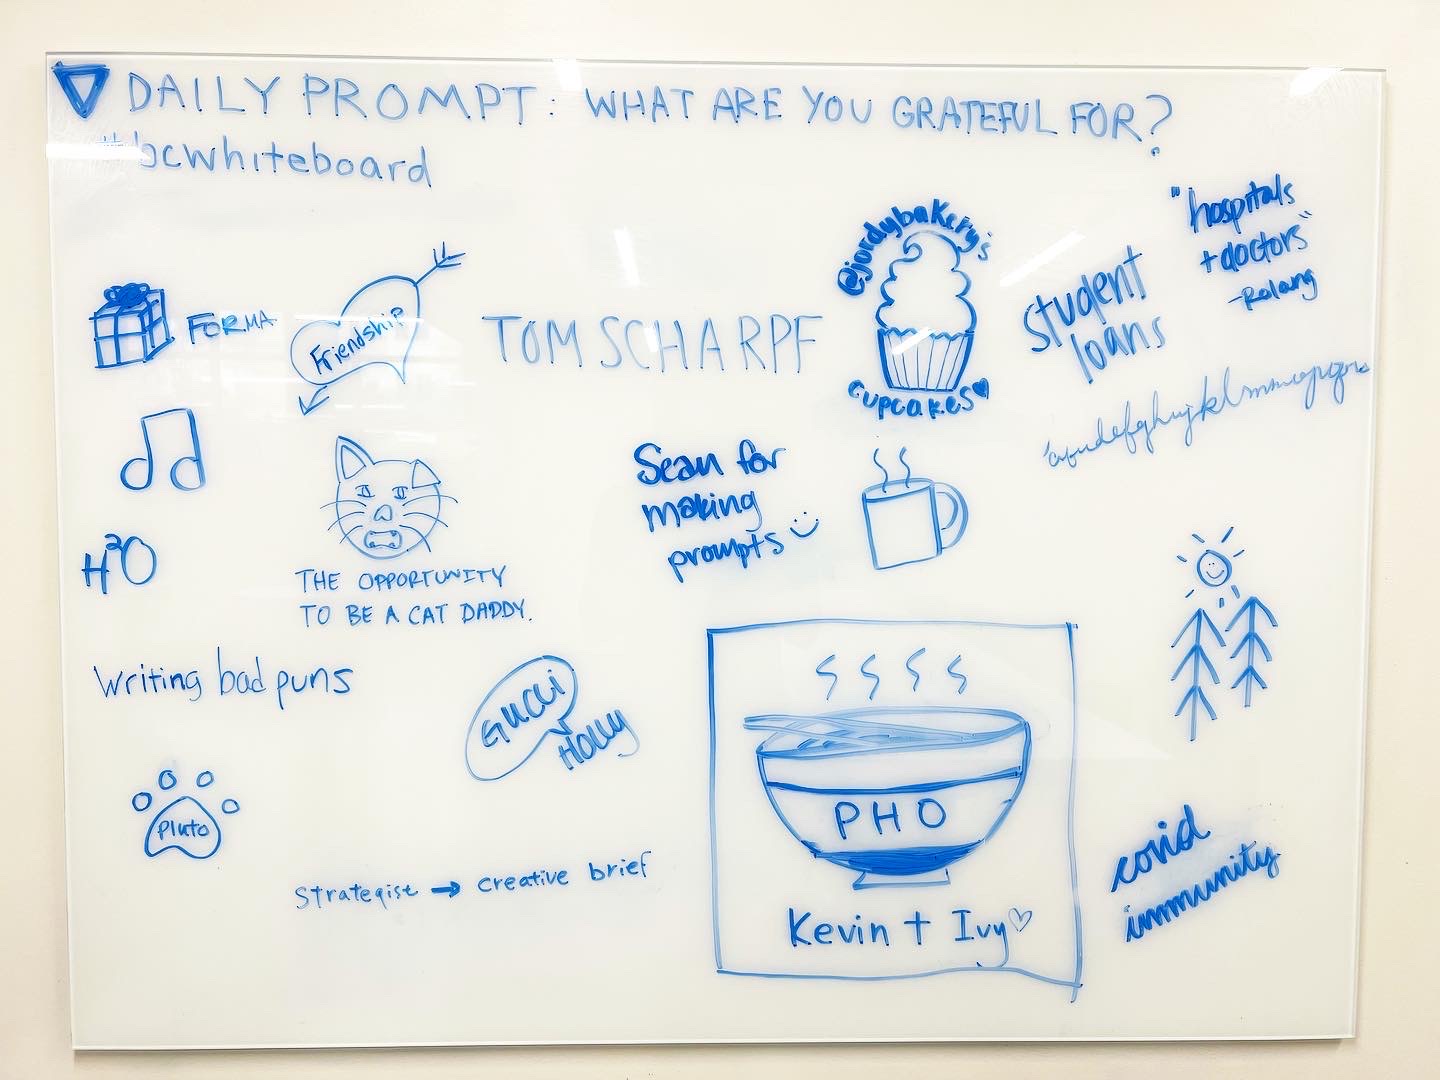 DAILY PROMPT: WHAT ARE YOU GRATEFUL FOR?
#bcwhiteboard
"hospitals
+ doctors"
- Rolang
@jordybakery's
cupcakes
student
loans
FORMA
Friendship
TOM SCHARPF
Sean for
making
prompts
H2O
THE OPPORTUNITY
TO BE A CAT DADDY.
Writing bad puns
GUCCI
HOLLY
Pluto
PHO
Kevin + Ivy
Strategist → creative brief
covid
immunity